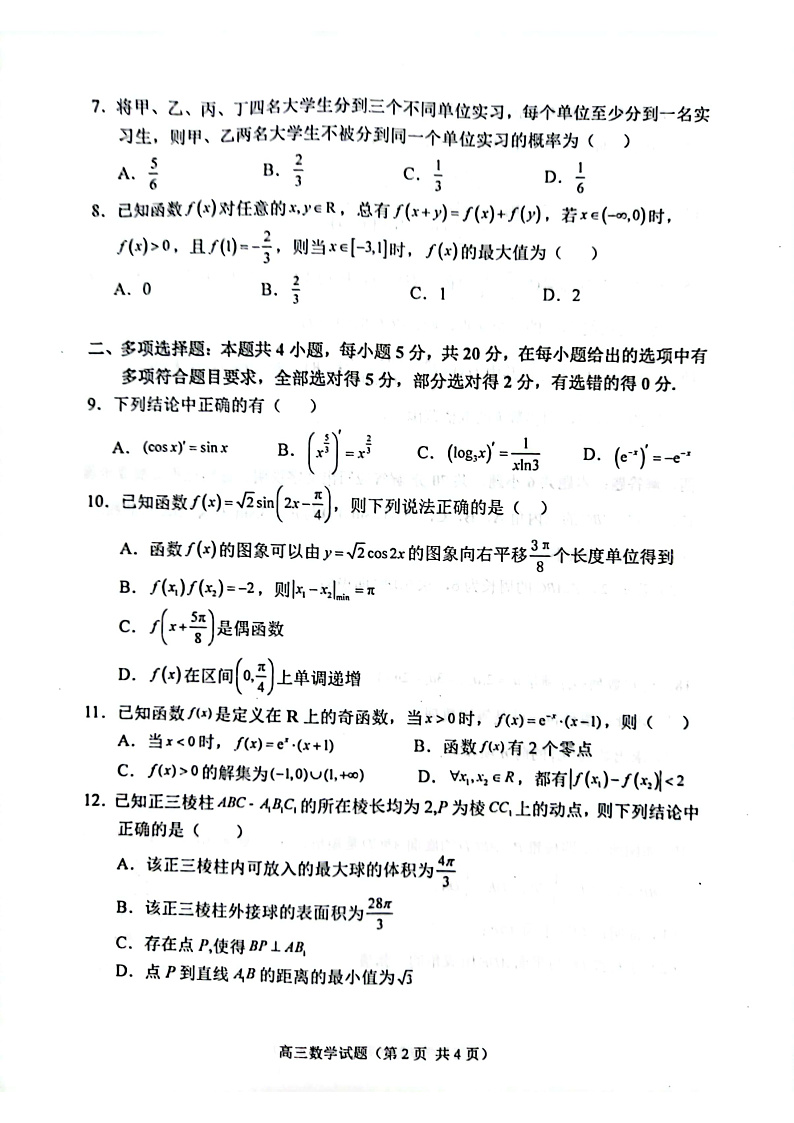 7．将甲、乙、丙、丁四名大学生分到三个不同单位实习，每个单位至少分到一名实
习生，则甲、乙两名大学生不被分到同一个单位实习的概率为（　　）
A．5/6　B．2/3　C．1/3　D．1/6
8．已知函数f(x)对任意的x,y∈R，总有f(x+y)=f(x)+f(y)，若x∈(−∞,0)时，
f(x)>0，且f(1)=−2/3，则当x∈[−3,1]时，f(x)的最大值为（　　）
A．0　B．2/3　C．1　D．2
二、多项选择题：本题共4小题，每小题5分，共20分，在每小题给出的选项中有
多项符合题目要求，全部选对得5分，部分选对得2分，有选错的得0分.
9．下列结论中正确的有（　　）
A．(cos x)′=sin x　B．(x^(5/3))′=x^(2/3)　C．(log₃x)′=1/(xln3)　D．(e^(−x))′=−e^(−x)
10．已知函数f(x)=√2sin(2x−π/4)，则下列说法正确的是（　　）
A．函数f(x)的图象可以由y=√2cos2x的图象向右平移3π/8个长度单位得到
B．f(x₁)f(x₂)=−2，则|x₁−x₂|min=π
C．f(x+5π/8)是偶函数
D．f(x)在区间(0,π/4)上单调递增
11．已知函数f(x)是定义在R上的奇函数，当x>0时，f(x)=e^(−x)·(x−1)，则（　　）
A．当x<0时，f(x)=e^x·(x+1)　B．函数f(x)有2个零点
C．f(x)>0的解集为(−1,0)∪(1,+∞)　D．∀x₁,x₂∈R，都有|f(x₁)−f(x₂)|<2
12．已知正三棱柱ABC-A₁B₁C₁的所在棱长均为2,P为棱CC₁上的动点，则下列结论中
正确的是（　　）
A．该正三棱柱内可放入的最大球的体积为4π/3
B．该正三棱柱外接球的表面积为28π/3
C．存在点P,使得BP⊥AB₁
D．点P到直线A₁B的距离的最小值为√3
高三数学试题（第2页 共4页）